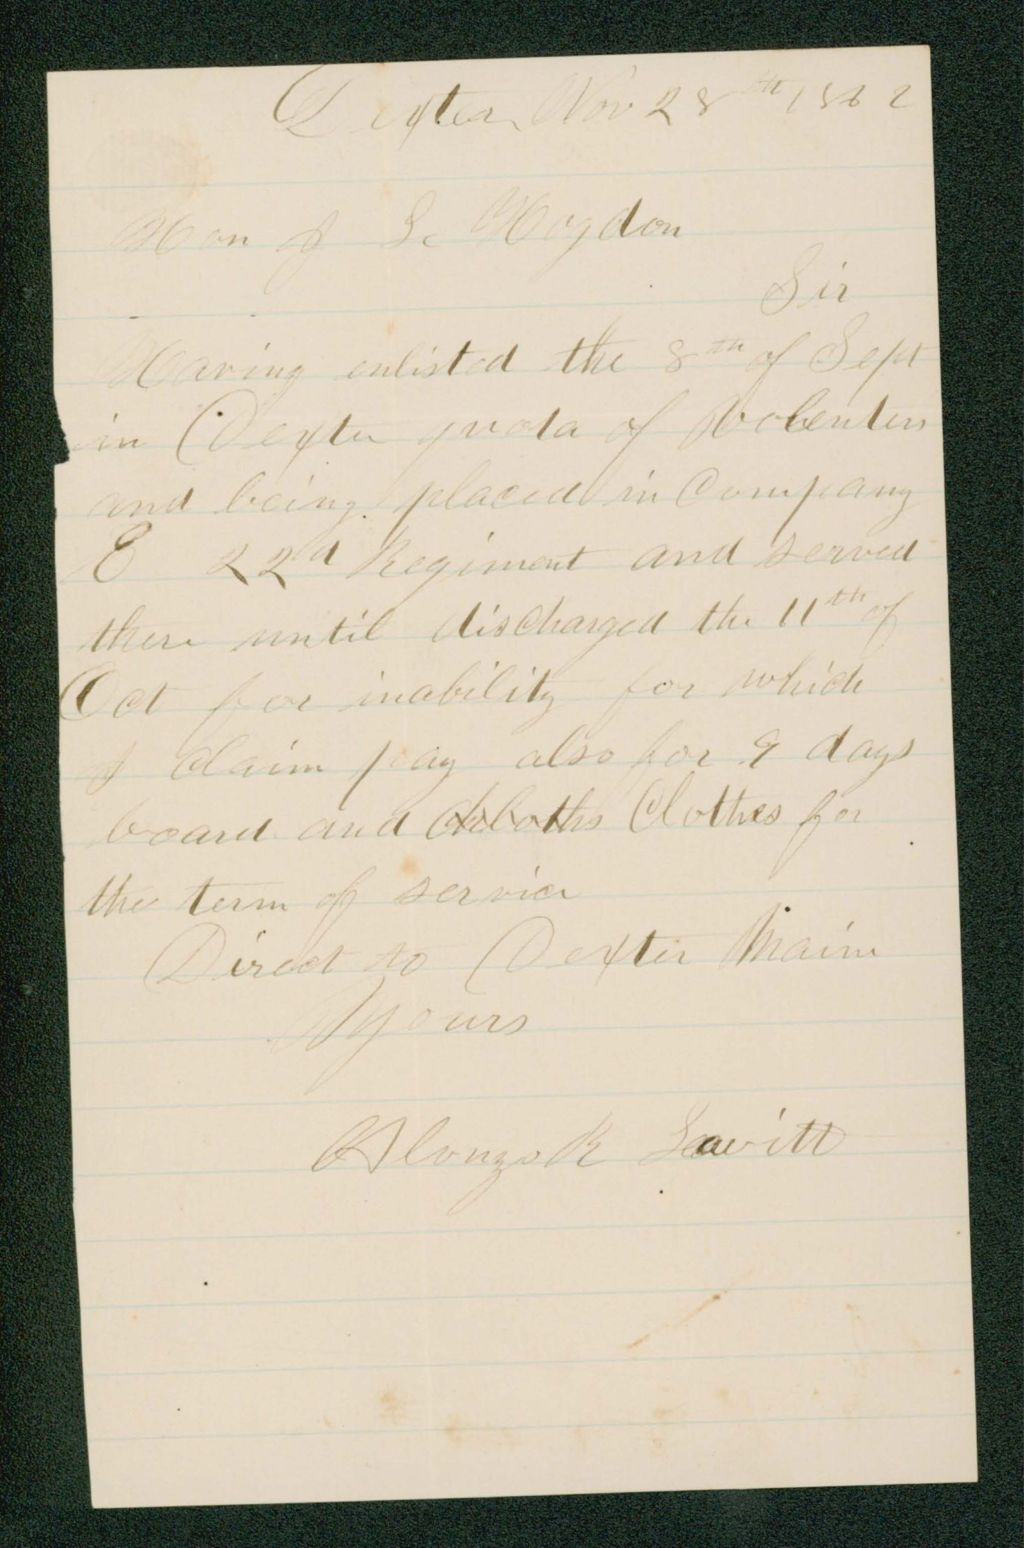 Dexter Nov 28th 1862
Hon J L Hogdon
Sir
Having enlisted the 8th of Sept
in Dexter quota of Volenters
and being placed in Company
E 22d Regiment and served
there until discharged the 11th of
Oct for inability for which
I claim pay also for 9 days
board and Clothes for
the term of service
Direct to Dexter Maine
Yours
Alonzo R Leavitt